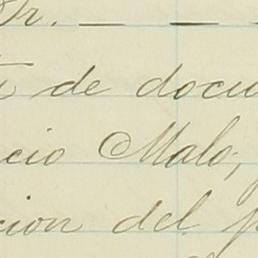 Sr. — —
de docu
cio Malo;
cion del p